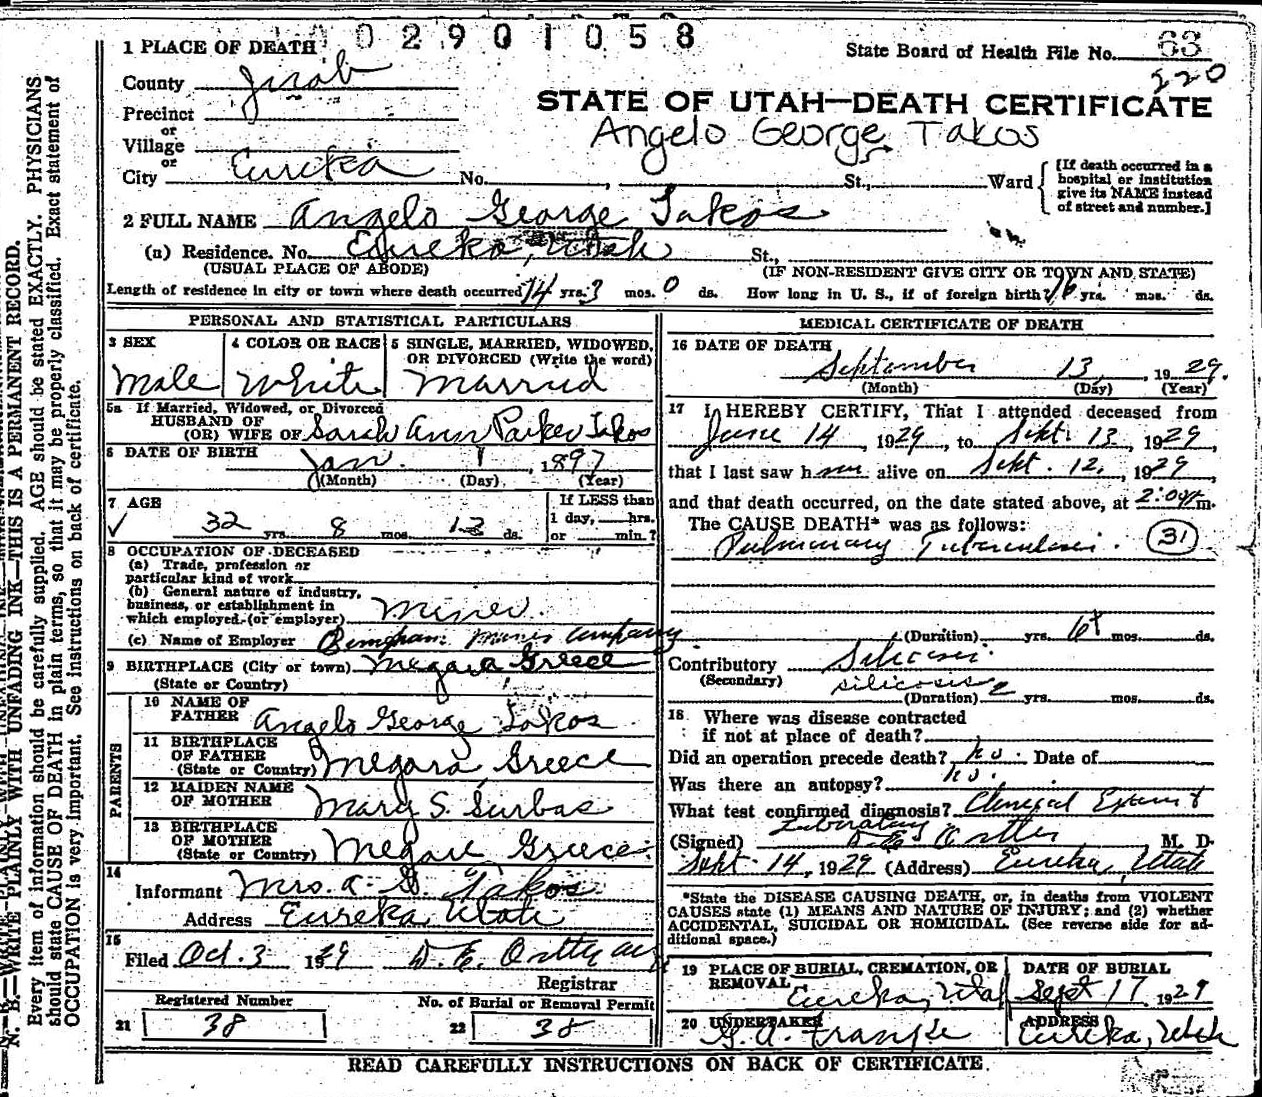 02901058
1 PLACE OF DEATH
State Board of Health File No. 63
220
County Juab
STATE OF UTAH—DEATH CERTIFICATE
Angelo George Takos
Precinct
or
Village
or
City Eureka No. , St., Ward
[If death occurred in a hospital or institution give its NAME instead of street and number.]
2 FULL NAME Angelo George Takos
(a) Residence. No. Eureka, Utah St.,
(USUAL PLACE OF ABODE) (IF NON-RESIDENT GIVE CITY OR TOWN AND STATE)
Length of residence in city or town where death occurred 14 yrs. 3 mos. 0 ds. How long in U. S., if of foreign birth? 16 yrs. mos. ds.
PERSONAL AND STATISTICAL PARTICULARS
3 SEX Male
4 COLOR OR RACE White
5 SINGLE, MARRIED, WIDOWED, OR DIVORCED (Write the word) Married
5a If Married, Widowed, or Divorced
HUSBAND OF
(OR) WIFE OF Sarah Ann Parker Takos
6 DATE OF BIRTH Jan. 1, 1897
(Month) (Day) (Year)
7 AGE
32 yrs. 8 mos. 12 ds.
If LESS than
1 day, hrs.
or min.?
8 OCCUPATION OF DECEASED
(a) Trade, profession or
particular kind of work
(b) General nature of industry,
business, or establishment in
which employed (or employer) Miner.
(c) Name of Employer Bingham Mines Company
9 BIRTHPLACE (City or town) Megara Greece
(State or Country)
PARENTS
10 NAME OF
FATHER Angelo George Takos
11 BIRTHPLACE
OF FATHER
(State or Country) Megara, Greece
12 MAIDEN NAME
OF MOTHER Mary S. Surbas
13 BIRTHPLACE
OF MOTHER
(State or Country) Megare Greece.
14
Informant Mrs. A. G. Takos
Address Eureka, Utah
15
Filed Oct. 3 1929 D. E.
Registrar
Registered Number
21 38
No. of Burial or Removal Permit
22 38
MEDICAL CERTIFICATE OF DEATH
16 DATE OF DEATH
September 13, 1929.
(Month) (Day) (Year)
17 I HEREBY CERTIFY, That I attended deceased from
June 14 1929, to Sept. 13, 1929,
that I last saw him alive on Sept. 12, 1929,
and that death occurred, on the date stated above, at 2:00 m.
The CAUSE DEATH* was as follows:
Pulmonary Tuberculosis. 31
(Duration) yrs. 6+ mos. ds.
Contributory Silicosis.
(Secondary) silicosis
(Duration) 2 yrs. mos. ds.
18 Where was disease contracted
if not at place of death?
Did an operation precede death? no. Date of
Was there an autopsy? no.
What test confirmed diagnosis? Clinical Exam &
Laboratory
(Signed) M. D.
Sept. 14, 1929 (Address) Eureka, Utah
*State the DISEASE CAUSING DEATH, or, in deaths from VIOLENT
CAUSES state (1) MEANS AND NATURE OF INJURY; and (2) whether
ACCIDENTAL, SUICIDAL OR HOMICIDAL. (See reverse side for ad-
ditional space.)
19 PLACE OF BURIAL, CREMATION, OR
REMOVAL Eureka, Utah
DATE OF BURIAL
Sept 17 1929
20 UNDERTAKER
ADDRESS
Eureka, Utah
READ CAREFULLY INSTRUCTIONS ON BACK OF CERTIFICATE
N. B.—WRITE PLAINLY WITH UNFADING INK—THIS IS A PERMANENT RECORD.
Every item of information should be carefully supplied. AGE should be stated EXACTLY. PHYSICIANS
should state CAUSE OF DEATH in plain terms, so that it may be properly classified. Exact statement of
OCCUPATION is very important. See instructions on back of certificate.